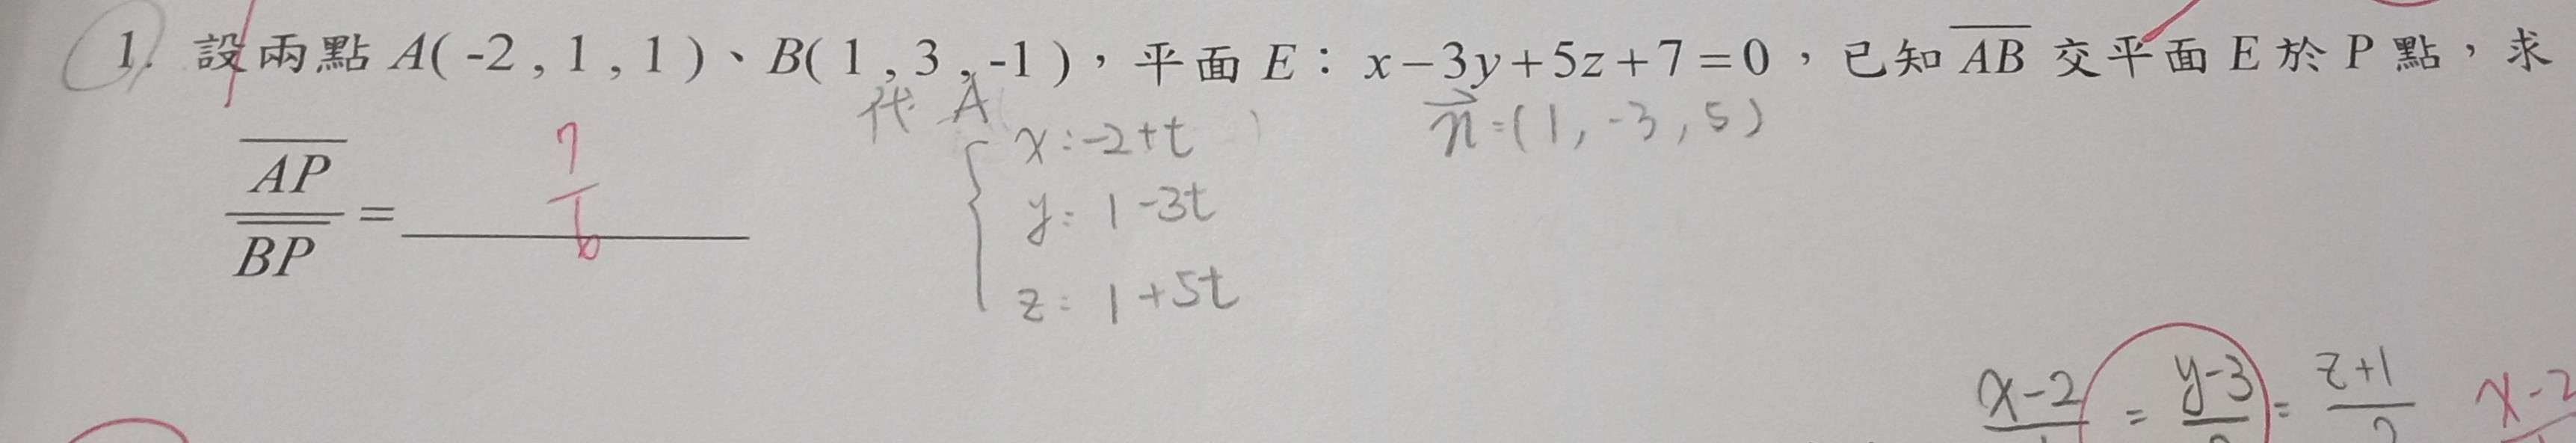 1. 設兩點 A( -2 , 1 , 1 )、B( 1 , 3 , -1 )，平面 E：x-3y+5z+7=0，已知 \overline{AB} 交平面 E 於 P 點，求
代 A
n⃗=(1, -3, 5)
\frac{\overline{AP}}{\overline{BP}} = \frac{7}{6}
x: -2+t
y: 1-3t
z: 1+5t
x-2 = y-3 = z+1
x-2